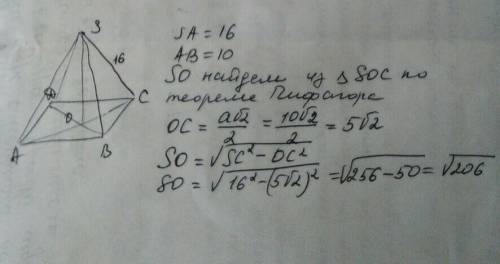 S
16
D
O
C
A
B
SA = 16
AB = 10
SO найдем из △SOC по
теореме Пифагора
OC = a√2/2 = 10√2/2 = 5√2
SO = √(SC² − OC²)
SO = √(16² − (5√2)²) = √(256 − 50) = √206